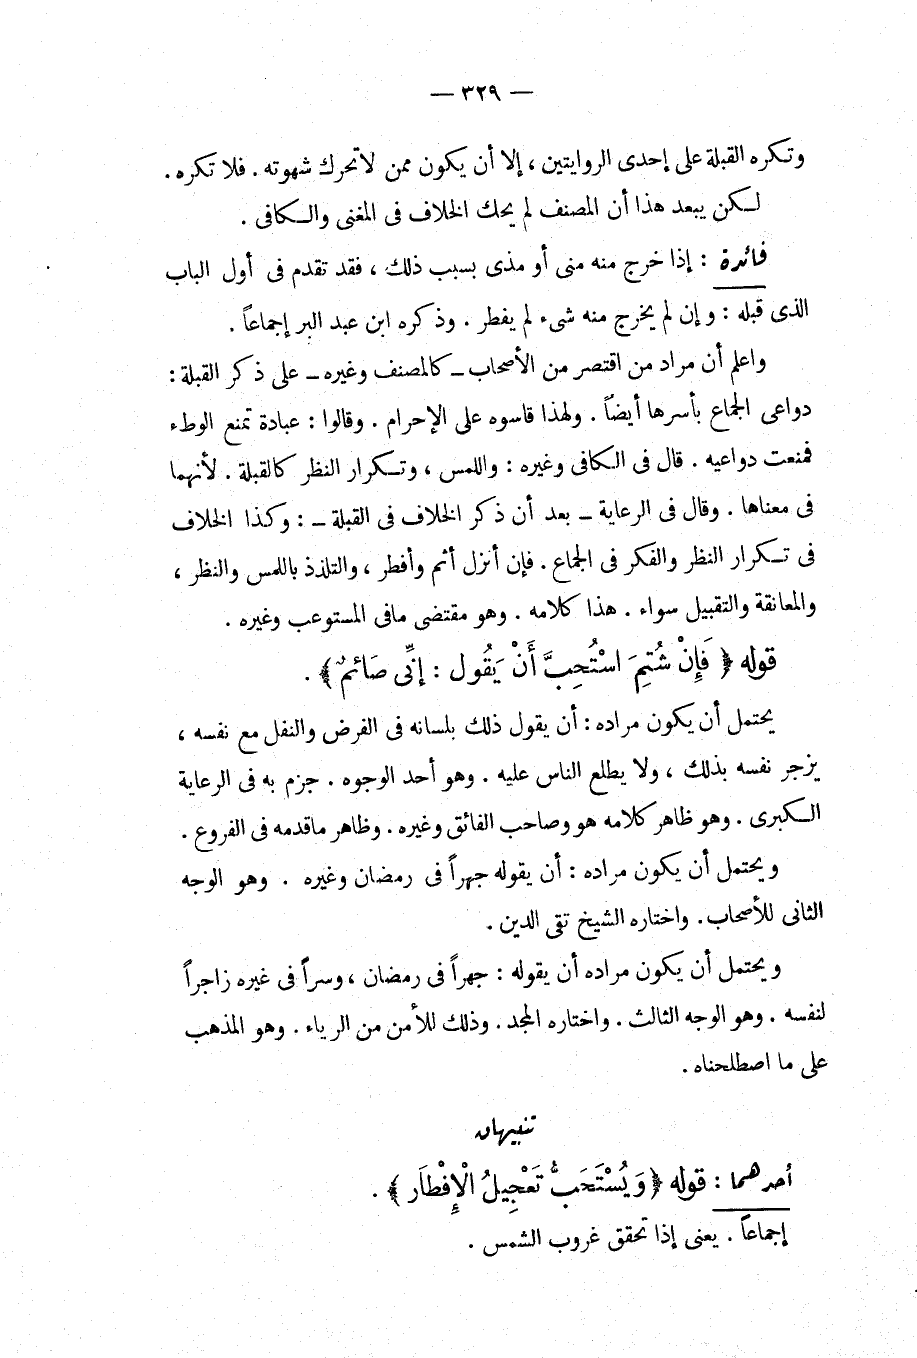 — ٣٢٩ —
وتكره القبلة على إحدى الروايتين ، إلا أن يكون ممن لا تحرك شهوته . فلا تكره .
لكن يبعد هذا أن المصنف لم يحك الخلاف فى المغنى والكافى .
فائدة : إذا خرج منه منى أو مذى بسبب ذلك ، فقد تقدم فى أول الباب
الذى قبله : وإن لم يخرج منه شىء لم يفطر . وذكره ابن عبد البر إجماعاً .
واعلم أن مراد من اقتصر من الأصحاب ـ كالمصنف وغيره ـ على ذكر القبلة :
دواعى الجماع بأسرها أيضاً . ولهذا قاسوه على الإحرام . وقالوا : عبادة تمنع الوطء
فمنعت دواعيه . قال فى الكافى وغيره : واللمس ، وتكرار النظر كالقبلة . لأنهما
فى معناها . وقال فى الرعاية ـ بعد أن ذكر الخلاف فى القبلة ـ : وكذا الخلاف
فى تكرار النظر والفكر فى الجماع . فإن أنزل أثم وأفطر ، والتلذذ باللمس والنظر ،
والمعانقة والتقبيل سواء . هذا كلامه . وهو مقتضى مافى المستوعب وغيره .
قوله ﴿ فَإِنْ شُتِمَ اسْتُحِبَّ أَنْ يَقُول : إنِّى صَائمٌ ﴾ .
يحتمل أن يكون مراده : أن يقول ذلك بلسانه فى الفرض والنفل مع نفسه ،
يزجر نفسه بذلك ، ولا يطلع الناس عليه . وهو أحد الوجوه . جزم به فى الرعاية
الكبرى . وهو ظاهر كلامه هو وصاحب الفائق وغيره . وظاهر ماقدمه فى الفروع .
ويحتمل أن يكون مراده : أن يقوله جهراً فى رمضان وغيره . وهو الوجه
الثانى للأصحاب . واختاره الشيخ تقى الدين .
ويحتمل أن يكون مراده أن يقوله : جهراً فى رمضان ، وسراً فى غيره زاجراً
لنفسه . وهو الوجه الثالث . واختاره المجد . وذلك للأمن من الرياء . وهو المذهب
على ما اصطلحناه .
تنبيهان
أحدهما : قوله ﴿ وَيُسْتَحَبُّ تَعْجِيلُ الْإِفْطَار ﴾ .
إجماعاً . يعنى إذا تحقق غروب الشمس .